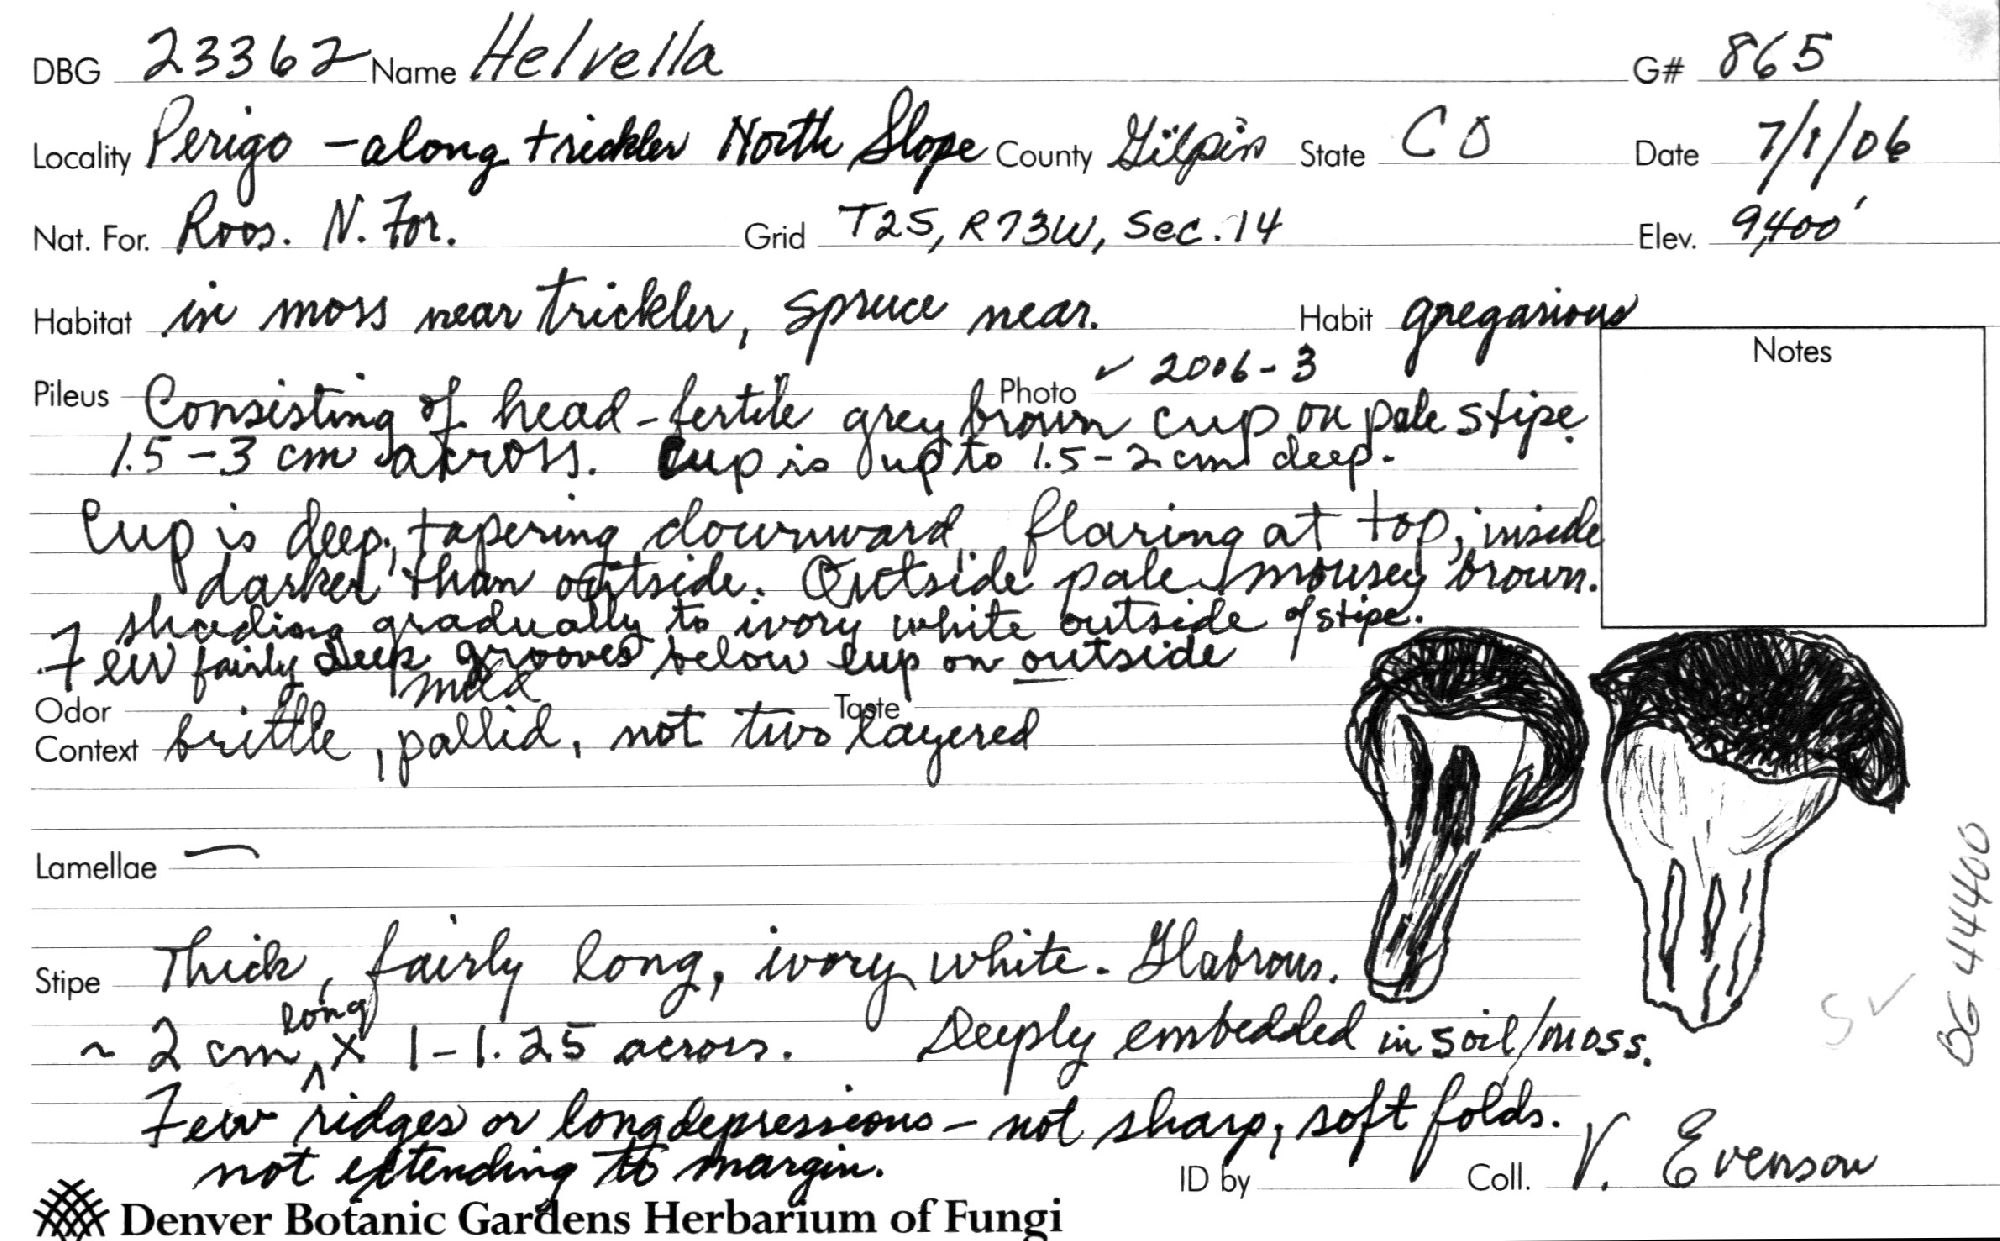 DBG 23362 Name Helvella G# 865
Locality Perigo - along trickler North Slope County Gilpin State CO Date 7/1/06
Nat. For. Roos. N. For. Grid T2S, R73W, Sec. 14 Elev. 9,400'
Habitat in moss near trickler, spruce near. Habit gregarious
Notes
Photo ✓ 2006-3
Pileus Consisting of head - fertile grey brown cup on pale stipe
1.5-3 cm across. Cup is up to 1.5-2 cm deep.
Cup is deep, tapering downward, flaring at top, inside
darker than outside. Outside pale mousey brown.
shading gradually to ivory white outside of stipe.
Few fairly deep grooves below cup on outside
Odor mild Taste
Context brittle, pallid, not two layered
Lamellae —
Stipe Thick, fairly long, ivory white. Glabrous.
~ 2 cm long x 1-1.25 across. Deeply embedded in soil/moss.
Few ridges or long depressions - not sharp, soft folds.
not extending to margin.
ID by Coll. V. Evenson
Denver Botanic Gardens Herbarium of Fungi
S ✓
DG 44400